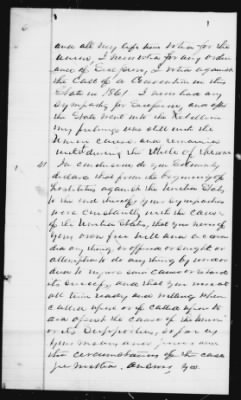 and all my life have voted for the
Union, I never voted for any ordin
ance of Secession, I voted against
the Call of a Convention in this
State in 1861. I never had any
sympathy for Secession, and after
the State went into the Rebellion
my feelings was still with the
Union cause and remained
until during the whole of the war
41 In conclusion do you solemnly
declare that from the beginning of
hostilities against the United States
to the end thereof your sympathies
were constantly with the cause
of the United States, that you never of
your own free will and accord
did anything, or offered or sought or
attempted to do anything by word or
deed to injure said cause or retard
its success, and that you were at
all times ready and willing when
called upon or if called upon to
aid and assist the cause of the Union
or its supporters, so far as
your means and power and
the circumstances of the case
permitted. Answer yes